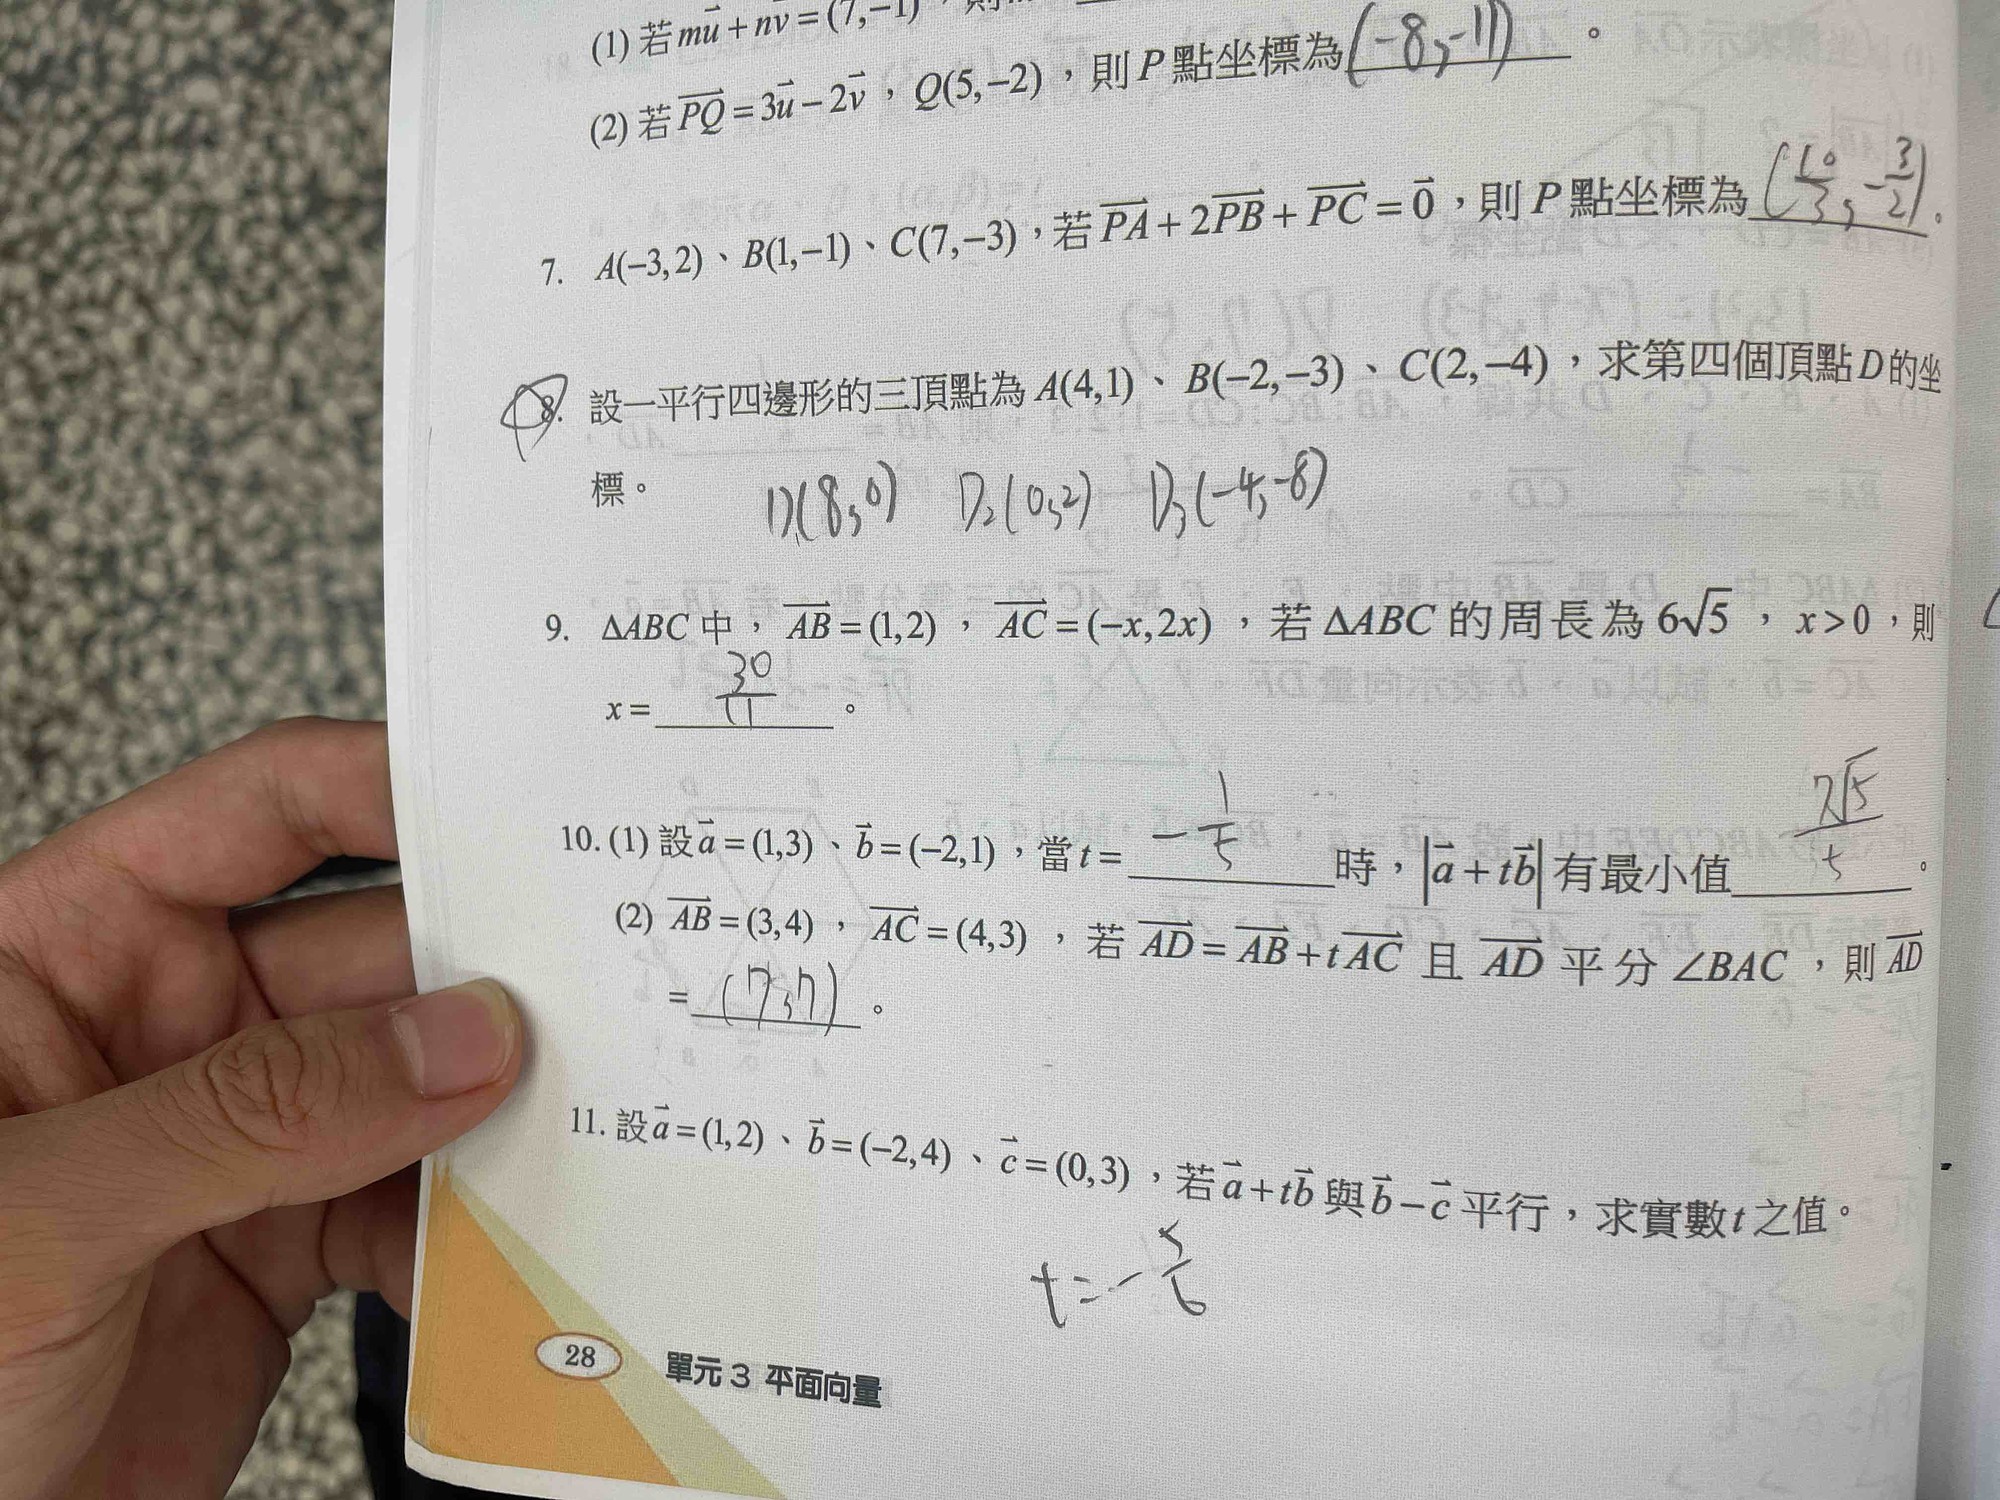 (1) 若 mu⃗ + nv⃗ = (7, −1)，則
(2) 若 PQ⃗ = 3u⃗ − 2v⃗，Q(5, −2)，則 P 點坐標為 (−8, −11)。
7. A(−3, 2)、B(1, −1)、C(7, −3)，若 PA⃗ + 2PB⃗ + PC⃗ = 0⃗，則 P 點坐標為 (10/3, −3/2)。
8. 設一平行四邊形的三頂點為 A(4, 1)、B(−2, −3)、C(2, −4)，求第四個頂點 D 的坐
標。 D₁(8, 0) D₂(0, 2) D₃(−4, −8)
9. ΔABC 中，AB⃗ = (1, 2)，AC⃗ = (−x, 2x)，若 ΔABC 的周長為 6√5，x > 0，則
x = 30/11。
10. (1) 設 a⃗ = (1, 3)、b⃗ = (−2, 1)，當 t = −1/5 時，|a⃗ + tb⃗| 有最小值 7√5/5。
(2) AB⃗ = (3, 4)，AC⃗ = (4, 3)，若 AD⃗ = AB⃗ + tAC⃗ 且 AD⃗ 平分 ∠BAC，則 AD⃗
= (7, 7)。
11. 設 a⃗ = (1, 2)、b⃗ = (−2, 4)、c⃗ = (0, 3)，若 a⃗ + tb⃗ 與 b⃗ − c⃗ 平行，求實數 t 之值。
t = −5/6
28 單元 3 平面向量